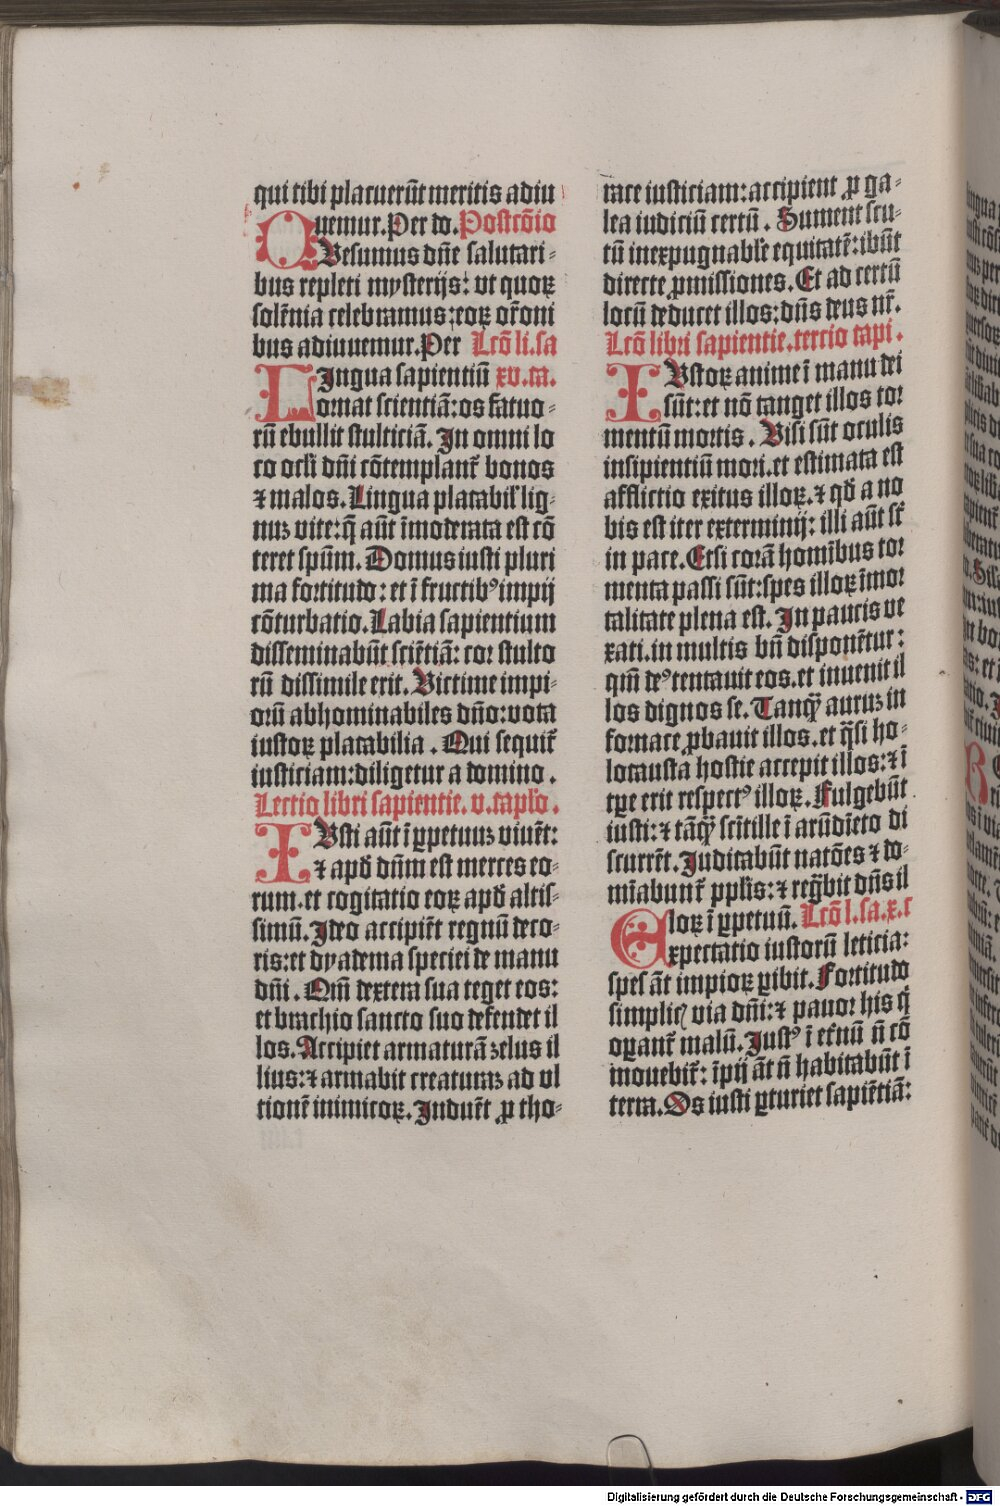 qui tibi placuerūt meritis adiu
uemur. Per do. Postcōio
QVesumus dn̄e salutari-
bus repleti mysterijs: vt quoꝝ
solēnia celebramus: eoꝝ or̄oni
bus adiuuemur. Per Lcō li. sa
LIngua sapientiū xv. ca.
ornat scientiā: os fatuo-
rū ebullit stulticiā. In omni lo
co ocl'i dn̄i cōtemplant᷑ bonos
⁊ malos. Lingua placabil' lig-
nuꝫ vite: q̄ aūt īmoderata est cō
teret spūm. Domus iusti pluri
ma fortitudo: et ī fructibꝰ impij
cōturbatio. Labia sapientium
disseminabūt sciētiā: cor stulto
rū dissimile erit. Victime impi-
orū abhominabiles dn̄o: vota
iustoꝝ placabilia. Qui sequit᷑
iusticiam: diligetur a domino.
Lectio libri sapientie. v. caplo.
IVsti aūt ī ꝑpetuuꝫ viuēt:
⁊ apd̄ dn̄m est merces eo-
rum. et cogitatio eoꝝ apd̄ altis-
simū. Ideo accipiēt regnū deco-
ris: et dyadema speciei de manu
dn̄i. Qm̄ dextera sua teget eos:
et brachio sancto suo defendet il
los. Accipiet armaturā zelus il
lius: ⁊ armabit creaturaꝫ ad vl
tionē inimicoꝝ. Induēt ꝓ tho-
race iusticiam: accipient ꝓ ga-
lea iudiciū certū. Sument scu-
tū inexpugnabl'e equitatē: ibūt
directe ꝓmissiones. Et ad certū
locū deducet illos: dn̄s deus nr̄.
Lcō libri sapientie. tercio capi.
IVstoꝝ anime ī manu dei
sūt: et nō tanget illos tor
mentū mortis. Visi sūt oculis
insipientiū mori. et estimata est
afflictio exitus illoꝝ. ⁊ qd̄ a no
bis est iter exterminij: illi aūt st̄
in pace. Etsi corā homībus tor
menta passi sūt: spes illoꝝ īmor
talitate plena est. In paucis ve
xati. in multis bn̄ disponētur:
qm̄ deꝰ tentauit eos. et inuenit il
los dignos se. Tanqꝫ auruꝫ in
fornace ꝓbauit illos. et q̄si ho-
locausta hostie accepit illos: ⁊ ī
tꝑe erit respectꝰ illoꝝ. Fulgebūt
iusti: ⁊ tāqꝫ scītille ī arūdīeto di
scurrēt. Judicabūt natōes ⁊ do-
mīabunt᷑ ppl'is: ⁊ regn̄bit dn̄s il
loꝝ ī ꝑpetuū. Lcō l. sa. x. c
Expectatio iustorū leticia:
spes āt impioꝝ ꝑibit. Fortitudo
simplicꝭ via dn̄i: ⁊ pauor his q̄
oꝑant᷑ malū. Justꝰ ī et̄nū n̄ cō
mouebit᷑: īpij āt n̄ habitabūt ī
terra. Os iusti ꝑturiet sapiētiā:
Digitalisierung gefördert durch die Deutsche Forschungsgemeinschaft - DFG